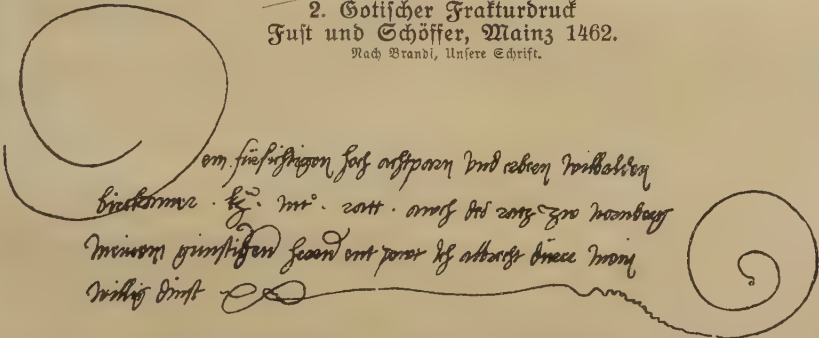 2. Gotischer Frakturdruck
Fust und Schöffer, Mainz 1462.
Nach Brandi, Unsere Schrift.
Dem fürsichtigen hoch achtparn vnd erbern wilbolden
birckamer · kӡ · mt° · ratt · auch des ratz zw nornberg
meinem günstigen heren ent pewt Ich albrecht dürer mein
willig dinst